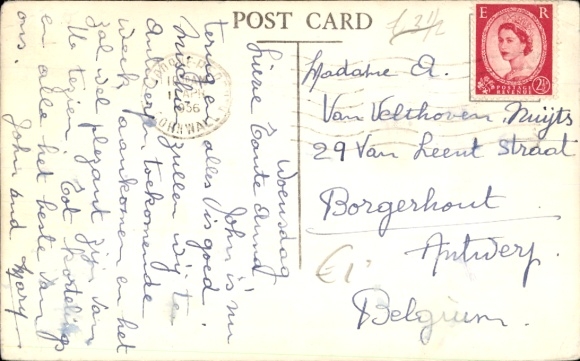 POST CARD
£ 2½
E R
POSTAGE
REVENUE
2½
CORNWALL
Woensdag
Lieve Tante Anna
John is nu
terug en alles is goed.
zullen wij te
Antwerpen toekomende
week aankomen en het
zal wel plezant zijn van
U te zien. Tot
en alle het beste van
ons.
John and Mary
Madame A.
Van Velthoven Nuijts
29 Van Leent Straat
Borgerhout
Antwerp.
Belgium.
€1